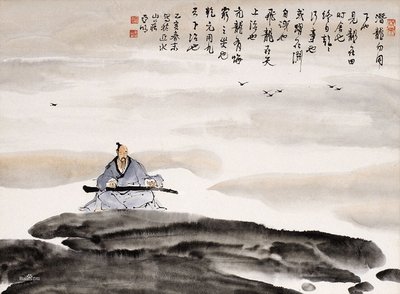 潛龍勿用
下也
見龍在田
時舍也
終日乾乾
行事也
或躍在淵
自試也
飛龍在天
上治也
亢龍有悔
窮之災也
乾元用九
天下治也
乙亥春末
寫於近水
山莊
亞明